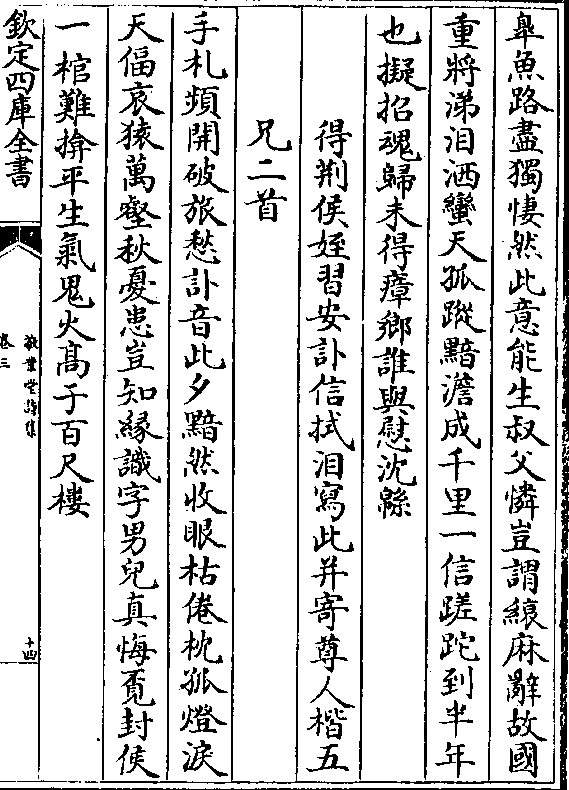 臯魚路盡獨悽然此意能生叔父憐豈謂縗麻辭故國
重將涕泪洒蠻天孤蹤黯澹成千里一信蹉跎到半年
也擬招魂歸未得瘴鄉誰與慰沈緜
得荆侯姪習安訃信拭泪寫此并寄尊人楷五
兄二首
手札頻開破旅愁訃音此夕黯然收眼枯倦枕孤燈淚
天偪哀猿萬壑秋憂患豈知緣識字男兒真悔覓封侯
一棺難揜平生氣鬼火髙于百尺樓
欽定四庫全書
敬業堂詩集
卷三
十四